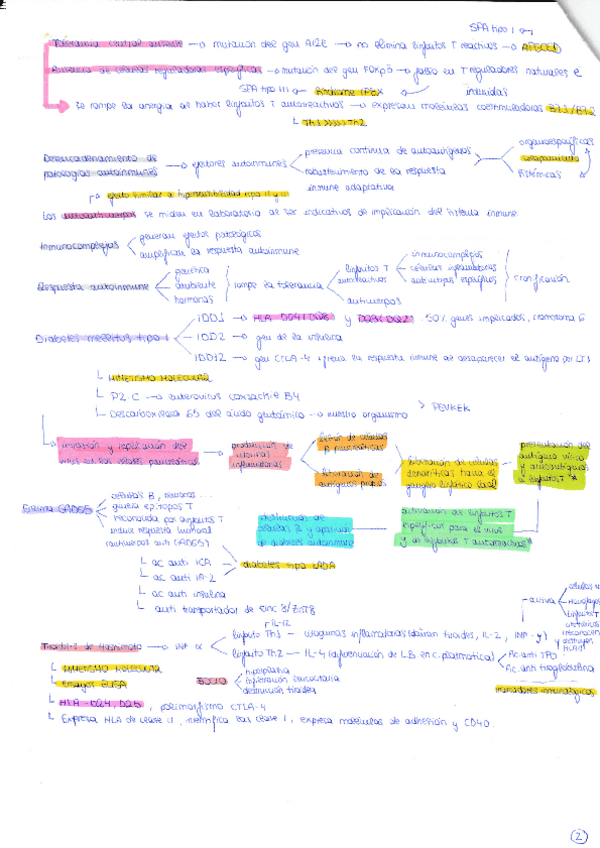 SPA tipo I
Tolerancia central ausente → mutación del gen AIRE → no elimina linfocitos T reactivos → APECED
Ausencia de células reguladoras específicas → mutación del gen FOXp3 → fallo en T reguladores naturales e
SPA tipo III Síndrome IPEX inducidas
Se rompe la anergia al haber linfocitos T autoreactivos → expresan moléculas coestimuladoras B7.1/B7.2
TH1 >>>>> TH2
organoespecíficas
Desencadenamiento de patologías autoinmunes → efectores autoinmunes
presencia continua de autoantígenos
robustecimiento de la respuesta inmune adaptativa
sistémicas
efecto similar a hipersensibilidad tipo II y
Los autoanticuerpos se miden en laboratorio al ser indicativos de implicación del sistema inmune.
Inmunocomplejos
generan efectos patológicos
amplifican la respuesta autoinmune
Respuesta autoinmune
genética
ambiente
hormonas
rompe la tolerancia
linfocitos T autoreactivos
anticuerpos
inmunocomplejos
células inflamatorias
anticuerpos específicos
cronificación
Diabetes mellitus tipo I
IDD1 → HLA DQ4/DQ8 y DQ3/DQ2. 50% genes implicados, cromosoma 6
IDD2 → gen de la insulina
IDD12 → gen CTLA-4 : frena la respuesta inmune al desaparecer el antígeno por LTs
MIMETISMO MOLECULAR
P2-C → enterovirus coxsackie B4
Descarboxilasa 65 del ácido glutámico → nuestro organismo
PEVKEK
infección y replicación del virus en las células pancreáticas
producción de citocinas inflamatorias
lisis de células β pancreáticas
liberación de antígenos propios
estimulación de células dendríticas hacia el ganglio linfático
presentación del antígeno vírico y autoantígenos a linfocitos T *
activación de linfocitos T específicos para el virus y de linfocitos T autoreactivos*
destrucción de células β y aparición de diabetes autoinmune
Enzima GAD65
células B, neuronas ...
genera epítopos T
reconocida por linfocitos T
induce respuesta humoral
(anticuerpos anti GAD65)
ac anti ICA
ac anti IA-2
ac anti insulina
anti transportador de zinc 8/ZnT8
diabetes tipo LADA
Tiroiditis de Hashimoto → INF α
IL-12
linfocito Th1 → citoquinas inflamatorias (dañan tiroides, IL-2, INF-γ)
linfocito Th2 → IL-4 (diferenciación de LB en c. plasmática)
activa
células
macrófagos
linfocitos T
Ac. anti TPO
Ac. anti tiroglobulina
marcadores inmunológicos
MIMETISMO MOLECULAR
Ensayos ELISA
BOCIO
hiperplasia
infiltración
destrucción tiroidea
HLA DQ4, DQ5, polimorfismo CTLA-4
Expresa HLA de clase II, intensifica las clase I, expresa moléculas de adhesión y CD40.
2